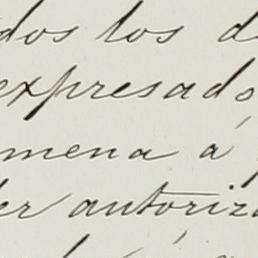 dos los d
expresado
mena á
er autoriz